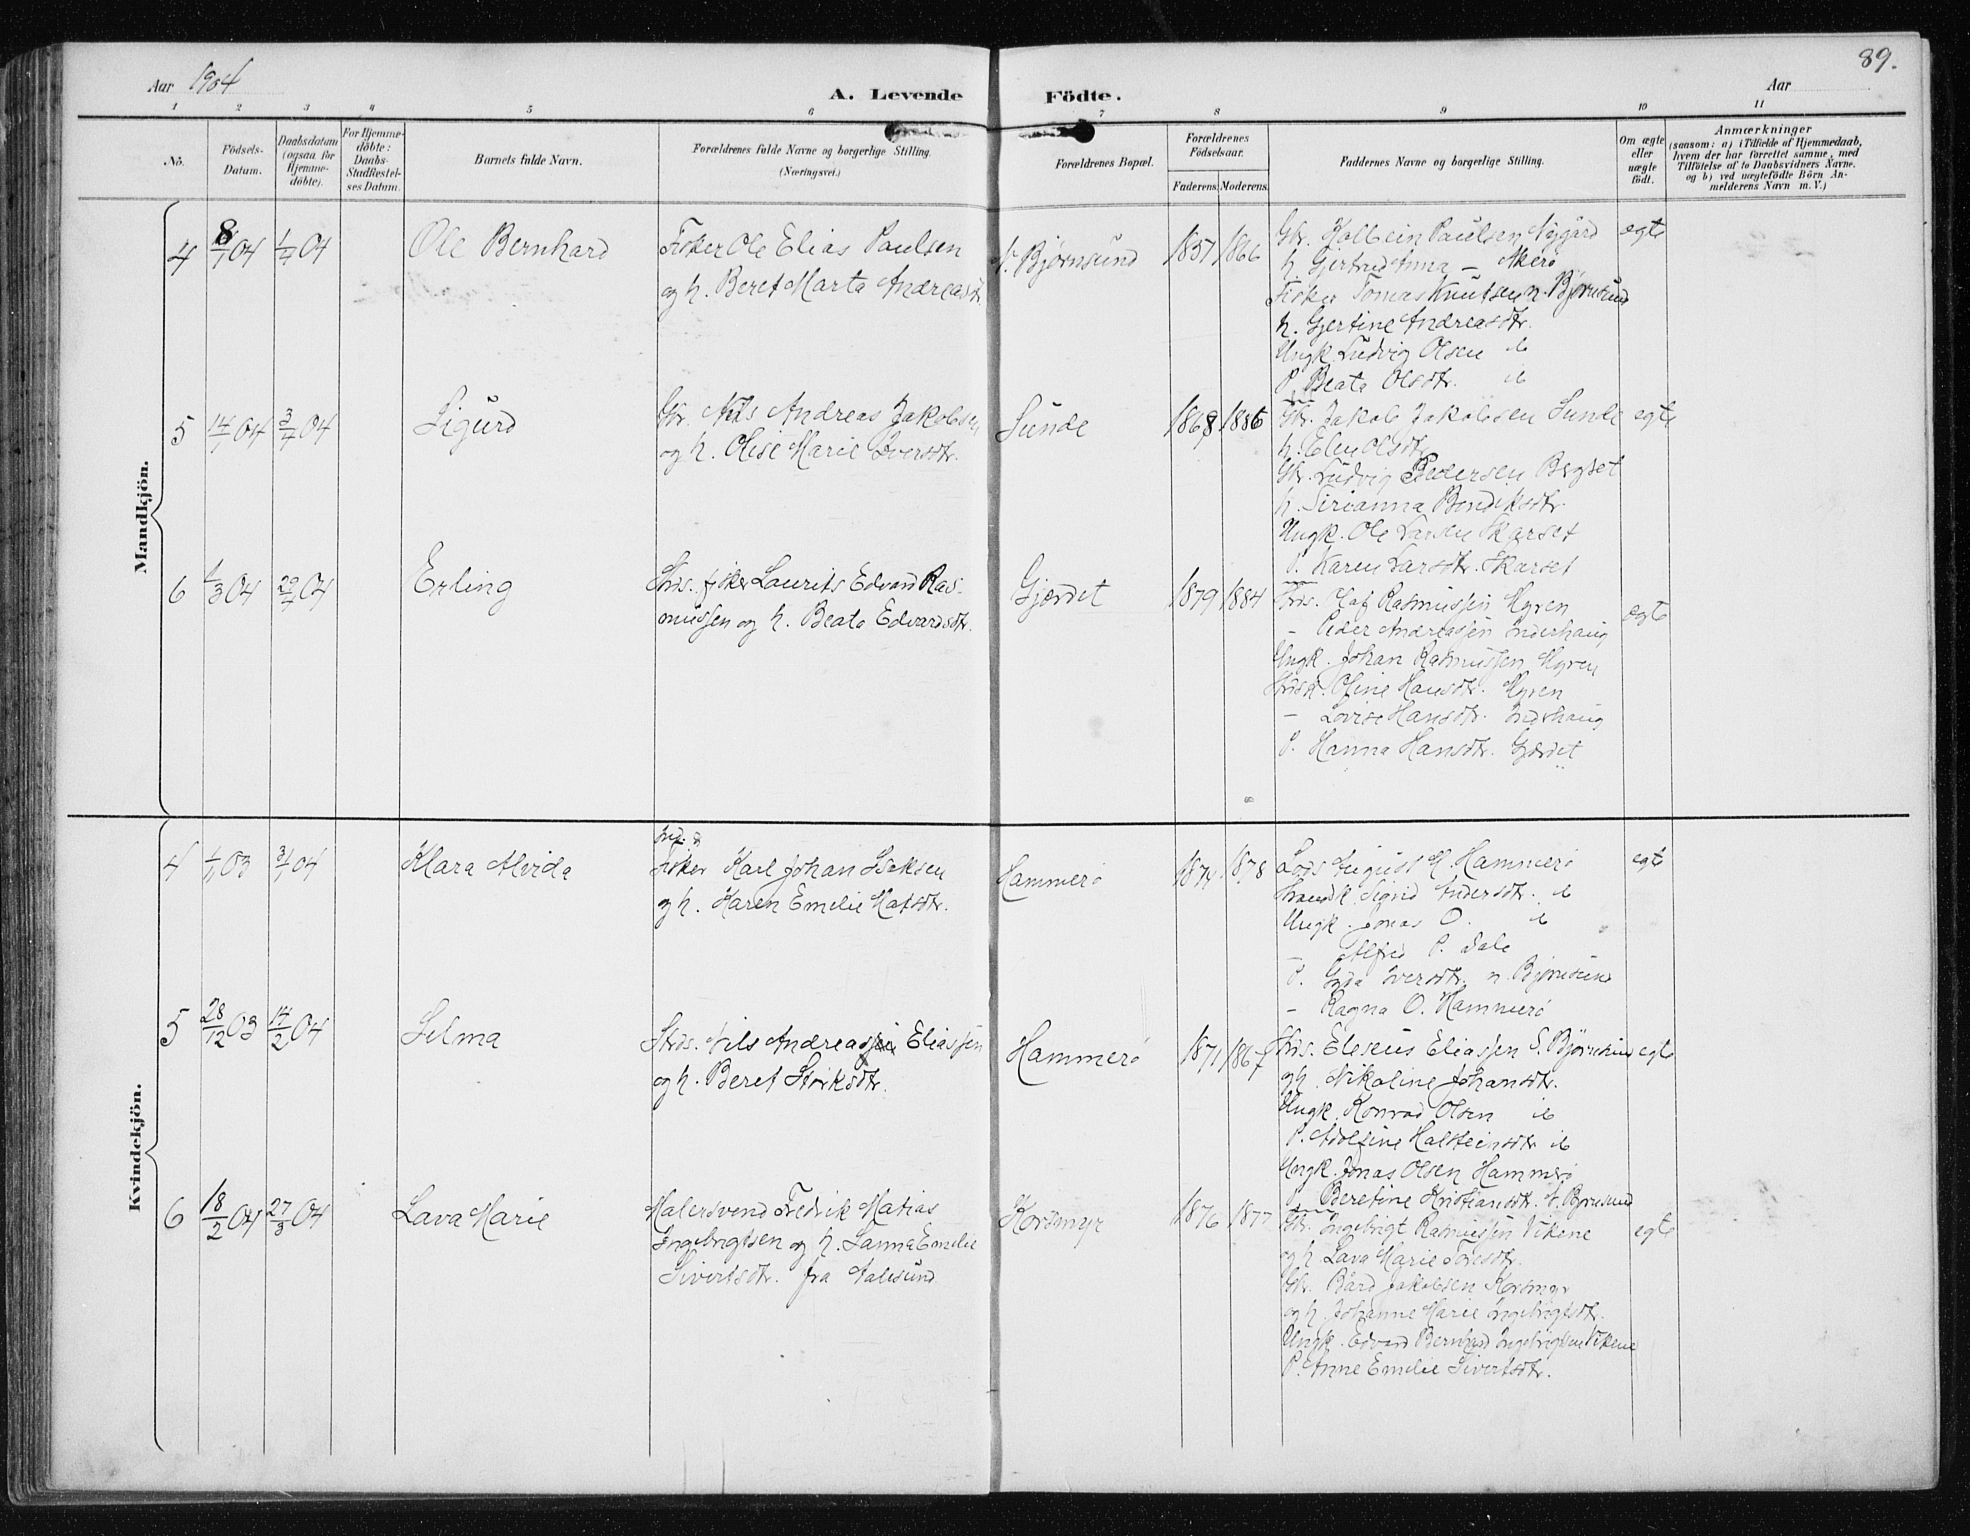 89.
Aar 1904
A. Levende Födte.
Aar
1 2 3 4 5 6 7 8 9 10 11
No.
Födsels-
Datum.
Daabsdatum
(ogsaa for
Hjemme-
döbte).
For Hjemme-
döbte:
Daabs-
Stadfæstel-
ses Datum.
Barnets fulde Navn.
Forældrenes fulde Navne og borgerlige Stilling.
(Næringsvei.)
Forældrenes Bopæl.
Forældrenes
Födselsaar.
Faderens. Moderens.
Faddernes Navne og borgerlige Stilling.
Om ægte
eller
uægte
födt.
Anmærkninger
(saasom: a) i Tilfælde af Hjemmedaab,
hvem der har forrettet samme, med
Tilföielse af to Daabsvidners Navne.
og b) ved uægtefödte Börn An-
melderens Navn m. V.)
Mandkjön.
4 8/1 04 1/4 04
Ole Bernhard
Fisker Ole Elias Paulsen
og h. Beret Marta Andreasdtr.
N. Bjørnsund
1857 1866
Gbr. Kolbein Paulsen Nygård
h. Gjertrud Anna — Akerø
Fisker Tomas Knutsen n. Bjørnsund
h. Gjertine Andreasdtr.
Ungk. Ludvig Olsen ib
P. Beata Olsdtr. ib
egte
5 14/1 04 3/4 04
Sigurd
Gbr. Nils Andreas Jakobsen
og h. Olise Marie Iversdtr.
Sunde
1868 1886
Gbr. Jakob Jakobsen Sunde
h. Elen Olsdtr.
Gbr. Ludvig Pedersen Bergset
h. Sirianna Bendiksdtr.
Ungk. Ole Larsen Skarset
P. Karen Larsdtr. Skarset
egte
6 1/3 04 04
Erling
Strds. fisker Laurits Edvard Ras-
mussen og h. Beata Edvardsdtr.
Gjærdet
1879 1884
Strds. Olaf Rasmussen Myren
— Peder Andreassen Inderhaug
Ungk. Johan Rasmussen Myren
Strdsk. Oline Hansdtr. Myren
— Lovise Hansdtr. Inderhaug
P. Hanna Hansdtr. Gjærdet
ægte
Kvindekjön.
4 03 04
Klara Alvida
Ind. &
Fisker Karl Johan Isaksen
og h. Karen Emelie Matsdtr.
Hammerø
1874 1878
Lods August M. Hammerø
Strandk. Sigrid Andersdtr. ib
Ungk. Jonas O. ib
— Alfred P. Dale
P. Gyda Iversdtr. n. Bjørnsund
— Ragna O. Hammerø
egte
5 28/12 03 14/2 04
Selma
Strds. Nils Andreas Eliassen
og h. Beret Storksdtr.
Hammerø
1871 1867
Strds. Eleseus Eliassen S. Bjørnsund
og h. Nikoline Johansdtr.
Ungk. Konrad Olsen ib
P. Adolfine Halsteinsdtr. ib
Ungk. Jonas Olsen Hammerø
P. Beretine Kristiansdtr. N. Bjørnsund
egte
6 18/2 04 27/3 04
Lava Marie
Malersvend Fredrik Matias
Engebrigtsen og h. Sanna Emelie
Sivertsdtr. fra Aalesund
Korsmyr
1876 1877
Gbr. Ingebrigt Rasmussen Vikene
og h. Lava Marie Toresdtr.
Gbr. Bård Jakobsen Korsmyr
og h. Johanne Marie Ingebrigtsdtr.
Ungk. Edvard Bernhard Ingebrigtsen Vikene
P. Anne Emelie Sivertsdtr.
egte